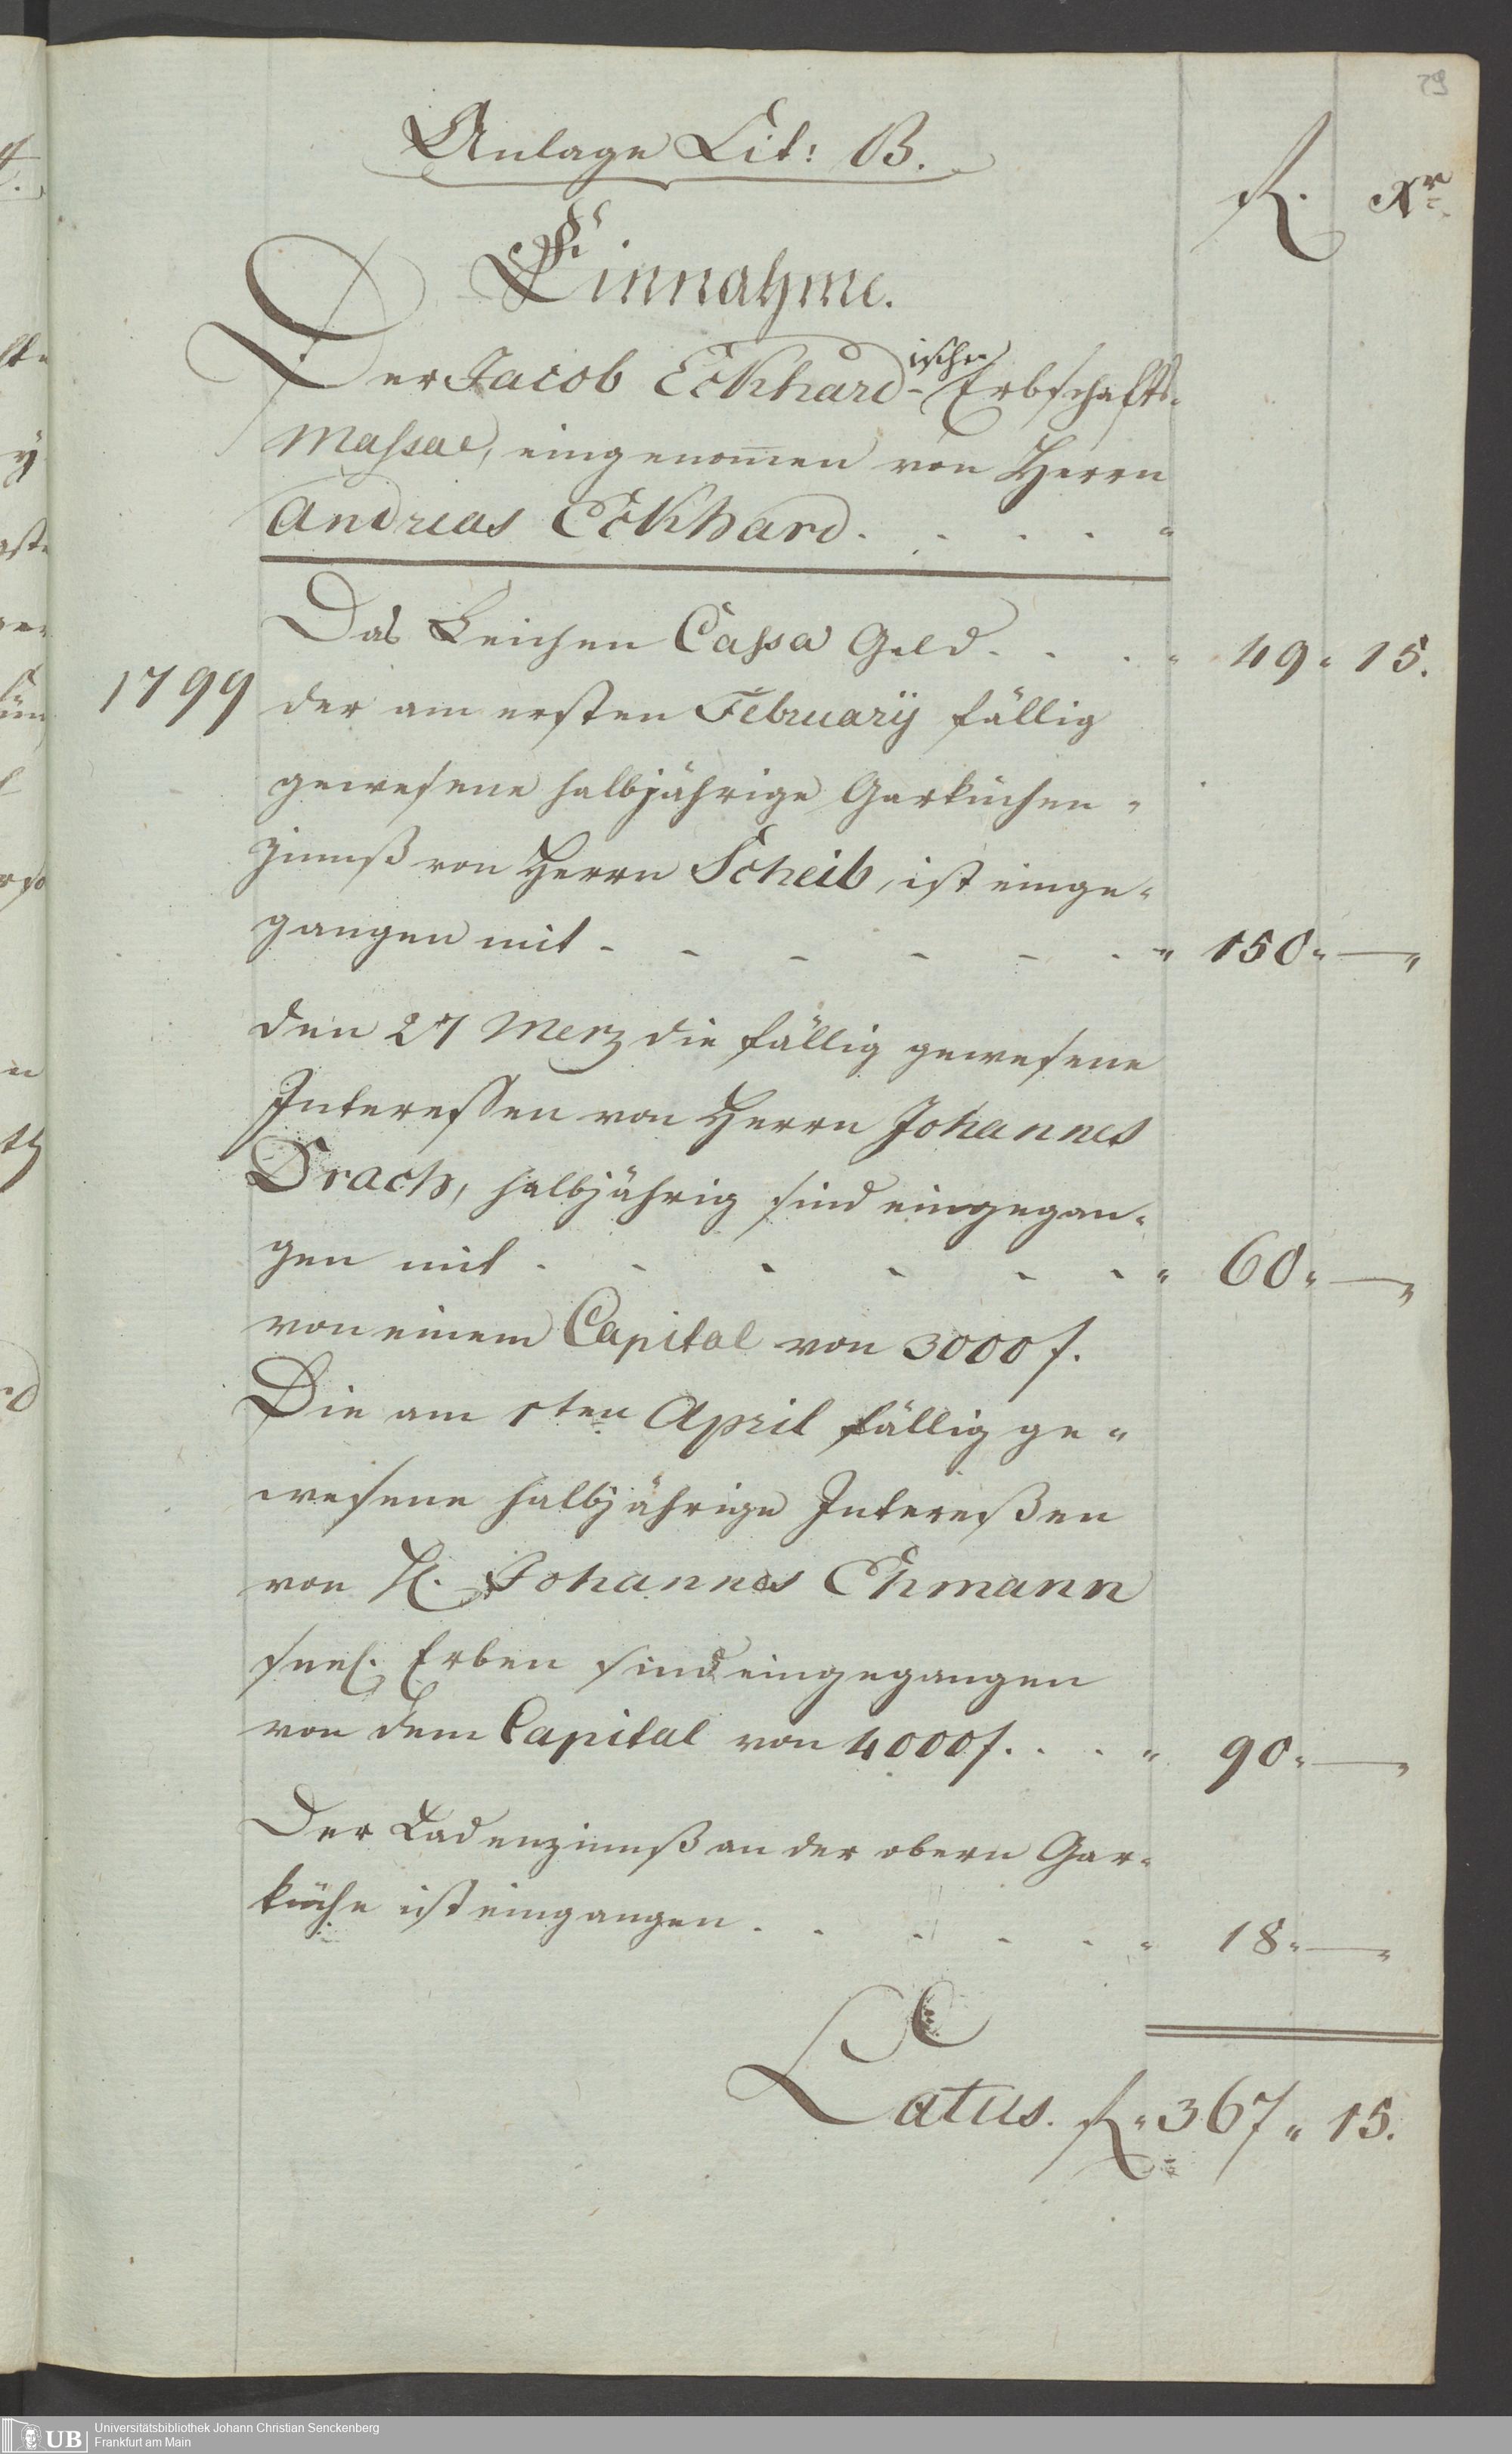 29
Anlage Lit: B.
fl. Xr.
Einnahme.
Der Jacob Eckhard-ischen Erbschafts-
Massae, eingenomen von Herrn
Andreas Eckhard. . . . . "
Das Leichen Cassa Geld. . . . " 49 " 15.
1799 der am ersten Februarÿ fällig
gewesene halbjährige Garküchen "
zinnß von Herrn Scheib, ist einge "
gangen mit - - - - - . " 150 " — "
den 27 Merz die fällig gewesene
Interessen von Herrn Johannes
Drach, halbjährig sind eingegan "
gen mit - - - - - - " 60 " — "
von einem Capital von 3000 f.
Die am 1ten April fällig ge "
wesene halbjährige Intereßen
von H. Johannes Ehmann
seel. Erben sind eingegangen
von dem Capital von 4000 f. . . . " 90 " — "
Der Ladenzinnß an der obern Gar "
küche ist eingangen . . . . . " 18 " — "
Latus. fl " 367 " 15.
UB Universitätsbibliothek Johann Christian Senckenberg
Frankfurt am Main